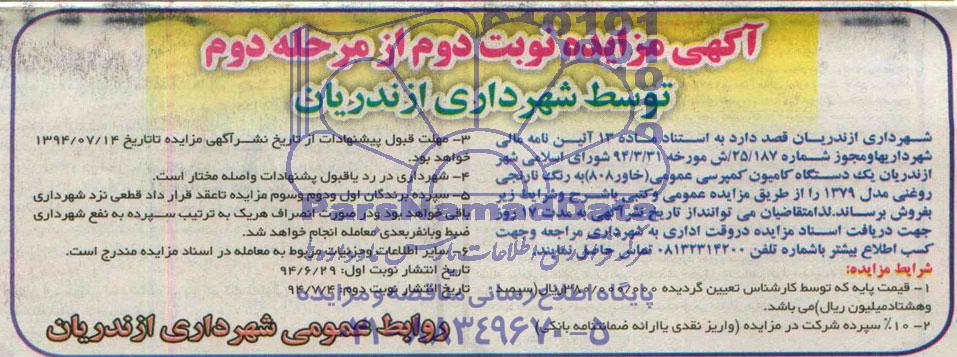 آگهی مزایده نوبت دوم از مرحله دوم
توسط شهرداری ازندریان
شهرداری ازندریان قصد دارد به استناد ماده ۱۳ آئین نامه مالی
شهرداریها ومجوز شماره ۲۵/۱۸۷/ش مورخه ۹۴/۳/۳۱ شورای اسلامی شهر
ازندریان یک دستگاه کامیون کمپرسی عمومی (خاور ۸۰۸) به رنگ نارنجی
روغنی مدل ۱۳۷۹ را از طریق مزایده عمومی وکتبی باشرح وشرایط زیر
بفروش برساند. لذا متقاضیان می توانند از تاریخ نشر آگهی به مدت ۱۷ روز
جهت دریافت اسناد مزایده دروقت اداری به شهرداری مراجعه وجهت
کسب اطلاع بیشتر باشماره تلفن ۰۸۱۳۲۳۱۴۲۰۰ تماس حاصل نمایند.
شرایط مزایده:
۱- قیمت پایه که توسط کارشناس تعیین گردیده ۳۸۰/۰۰۰/۰۰۰ ریال (سیصد
وهشتاد میلیون ریال) می باشد.
۲- ۱۰٪ سپرده شرکت در مزایده (واریز نقدی یا ارائه ضمانتنامه بانکی)
۳- مهلت قبول پیشنهادات از تاریخ نشر آگهی مزایده تاتاریخ ۱۳۹۴/۰۷/۱۴
خواهد بود.
۴- شهرداری در رد یاقبول پشنهادات واصله مختار است.
۵- سپرده برندگان اول ودوم وسوم مزایده تاعقد قرار داد قطعی نزد شهرداری
باقی خواهد بود ودر صورت انصراف هریک به ترتیب سپرده به نفع شهرداری
ضبط وبانفر بعدی معامله انجام خواهد شد.
۶- سایر اطلاعات وجزییات مربوط به معامله در اسناد مزایده مندرج است.
تاریخ انتشار نوبت اول: ۹۴/۶/۲۹
تاریخ انتشار نوبت دوم: ۹۴/۷/۴
روابط عمومی شهرداری ازندریان
ParsNamadData
پایگاه اطلاع رسانی مناقصه و مزایده